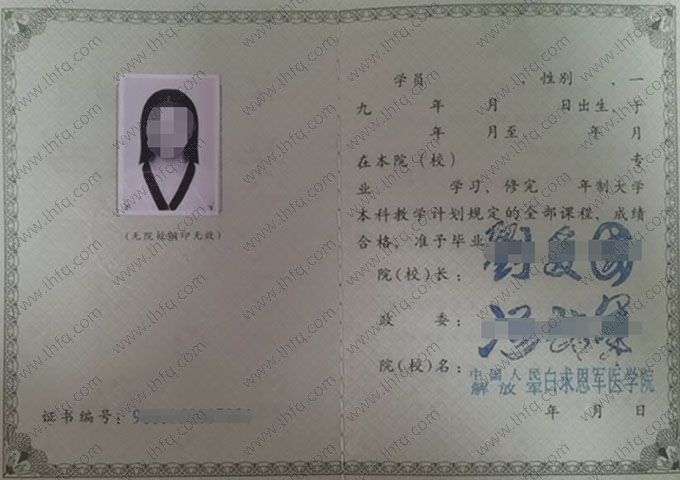 (无院校钢印无效)
证书编号:
学员 、性别 、一
九 年 月 日出生、于
年 月至 年 月
在本院(校) 专
业 学习、修完 年制大学
本科教学计划规定的全部课程，成绩
合格，准予毕业
院(校)长:
政 委:
院(校)名: 中国人民解放军白求恩军医学院
年 月 日
www.lhfq.com